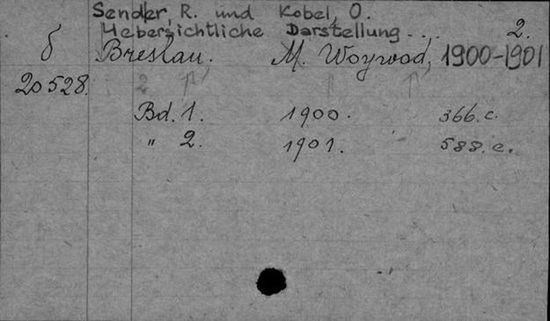 Sendler, R. und Kobel, O.
Uebersichtliche Darstellung... 2.
б Breslau. M. Woywod, 1900-1901
20528.
Bd. 1. 1900. 366. с.
" 2. 1901. 588. с.